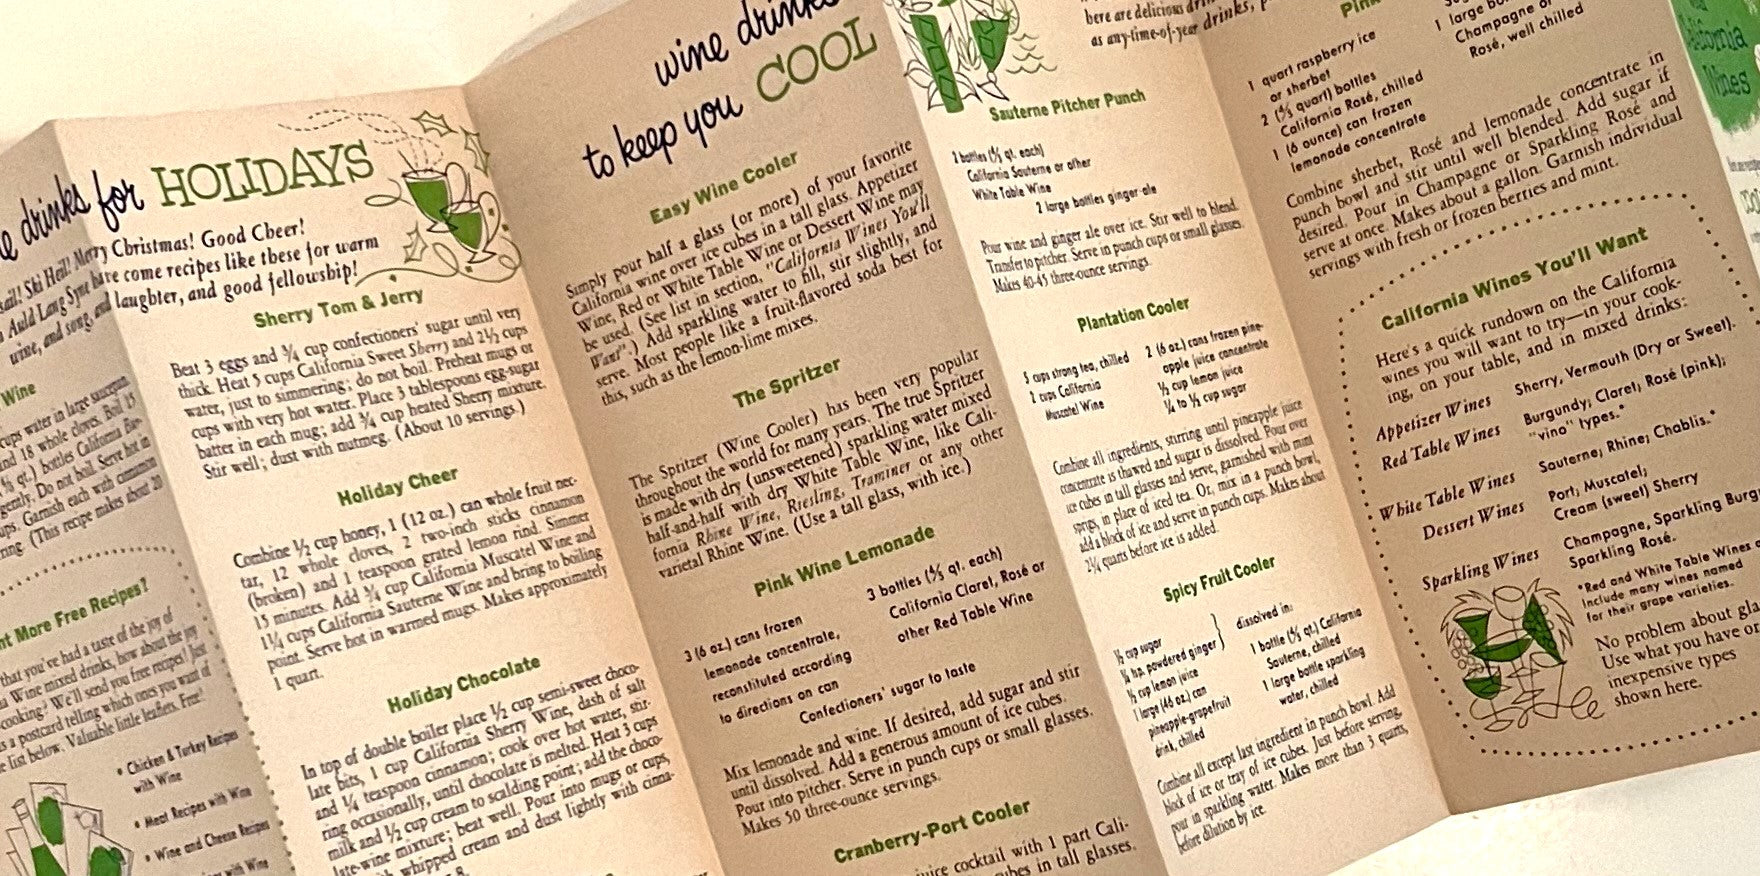 drinks for HOLIDAYS
Ski Heil! Merry Christmas! Good Cheer!
Auld Lang Syne have come recipes like these for warm
wine, and song, and laughter, and good fellowship!
Wine
cups water in large saucepan
and 18 whole cloves. Boil 15
qt.) bottles California Bur-
gently. Do not boil. Serve hot in
cups. Garnish each with cinnamon
(This recipe makes about 20
More Free Recipes?
that you've had a taste of the joy of
Wine mixed drinks, how about the joy
cooking? We'll send you free recipes! Just
us a postcard telling which ones you want of
the list below. Valuable little leaflets. Free!
• Chicken & Turkey Recipes
with Wine
• Meat Recipes with Wine
• Wine and Cheese Recipes
with Wine
Sherry Tom & Jerry
Beat 3 eggs and ¾ cup confectioners' sugar until very
thick. Heat 5 cups California Sweet Sherry and 2½ cups
water, just to simmering; do not boil. Preheat mugs or
cups with very hot water. Place 3 tablespoons egg-sugar
batter in each mug; add ¾ cup heated Sherry mixture.
Stir well; dust with nutmeg. (About 10 servings.)
Holiday Cheer
Combine ½ cup honey, 1 (12 oz.) can whole fruit nec-
tar, 12 whole cloves, 2 two-inch sticks cinnamon
(broken) and 1 teaspoon grated lemon rind. Simmer
15 minutes. Add ¾ cup California Muscatel Wine and
1¼ cups California Sauterne Wine and bring to boiling
point. Serve hot in warmed mugs. Makes approximately
1 quart.
Holiday Chocolate
In top of double boiler place ½ cup semi-sweet choco-
late bits, 1 cup California Sherry Wine, dash of salt
and ¼ teaspoon cinnamon; cook over hot water, stir-
ring occasionally, until chocolate is melted. Heat 3 cups
milk and ½ cup cream to scalding point; add the choco-
late-wine mixture; beat well. Pour into mugs or cups,
whipped cream and dust lightly with cinna-
wine drinks
to keep you COOL
Easy Wine Cooler
Simply pour half a glass (or more) of your favorite
California wine over ice cubes in a tall glass. Appetizer
Wine, Red or White Table Wine or Dessert Wine may
be used. (See list in section, "California Wines You'll
Want".) Add sparkling water to fill, stir slightly, and
serve. Most people like a fruit-flavored soda best for
this, such as the lemon-lime mixes.
The Spritzer
The Spritzer (Wine Cooler) has been very popular
throughout the world for many years. The true Spritzer
is made with dry (unsweetened) sparkling water mixed
half-and-half with dry White Table Wine, like Cali-
fornia Rhine Wine, Riesling, Traminer or any other
varietal Rhine Wine. (Use a tall glass, with ice.)
Pink Wine Lemonade
3 (6 oz.) cans frozen
lemonade concentrate,
reconstituted according
to directions on can
3 bottles (⅘ qt. each)
California Claret, Rosé or
other Red Table Wine
Confectioners' sugar to taste
Mix lemonade and wine. If desired, add sugar and stir
until dissolved. Add a generous amount of ice cubes.
Pour into pitcher. Serve in punch cups or small glasses.
Makes 50 three-ounce servings.
Cranberry-Port Cooler
juice cocktail with 1 part Cali-
cubes in tall glasses.
here are delicious
as any-time-of-year drinks,
Sauterne Pitcher Punch
2 bottles (⅘ qt. each)
California Sauterne or other
White Table Wine
2 large bottles ginger-ale
Pour wine and ginger ale over ice. Stir well to blend.
Transfer to pitcher. Serve in punch cups or small glasses.
Makes 40-45 three-ounce servings.
Plantation Cooler
3 cups strong tea, chilled
2 cups California
Muscatel Wine
2 (6 oz.) cans frozen pine-
apple juice concentrate
½ cup lemon juice
¼ to ½ cup sugar
Combine all ingredients, stirring until pineapple juice
concentrate is thawed and sugar is dissolved. Pour over
ice cubes in tall glasses and serve, garnished with mint
sprigs, in place of iced tea. Or, mix in a punch bowl,
add a block of ice and serve in punch cups. Makes about
2¼ quarts before ice is added.
Spicy Fruit Cooler
½ cup sugar
¼ tsp. powdered ginger
dissolved in:
½ cup lemon juice
1 large (46 oz.) can
pineapple-grapefruit
drink, chilled
1 bottle (⅘ qt.) California
Sauterne, chilled
1 large bottle sparkling
water, chilled
Combine all except last ingredient in punch bowl. Add
block of ice or tray of ice cubes. Just before serving,
pour in sparkling water. Makes more than 3 quarts,
before dilution by ice.
Pink
1 quart raspberry ice
or sherbet
2 (⅘ quart) bottles
California Rosé, chilled
1 (6 ounce) can frozen
lemonade concentrate
1 large
Champagne or
Rosé, well chilled
Combine sherbet, Rosé and lemonade concentrate in
punch bowl and stir until well blended. Add sugar if
desired. Pour in Champagne or Sparkling Rosé and
serve at once. Makes about a gallon. Garnish individual
servings with fresh or frozen berries and mint.
California Wines You'll Want
Here's a quick rundown on the California
wines you will want to try—in your cook-
ing, on your table, and in mixed drinks:
Appetizer Wines Sherry, Vermouth (Dry or Sweet).
Red Table Wines Burgundy; Claret; Rosé (pink);
"vino" types.*
White Table Wines Sauterne; Rhine; Chablis.*
Dessert Wines Port; Muscatel;
Cream (sweet) Sherry
Sparkling Wines Champagne, Sparkling Burg
Sparkling Rosé.
*Red and White Table Wines
include many wines named
for their grape varieties.
No problem about
Use what you have or
inexpensive types
shown here.
California
Wines